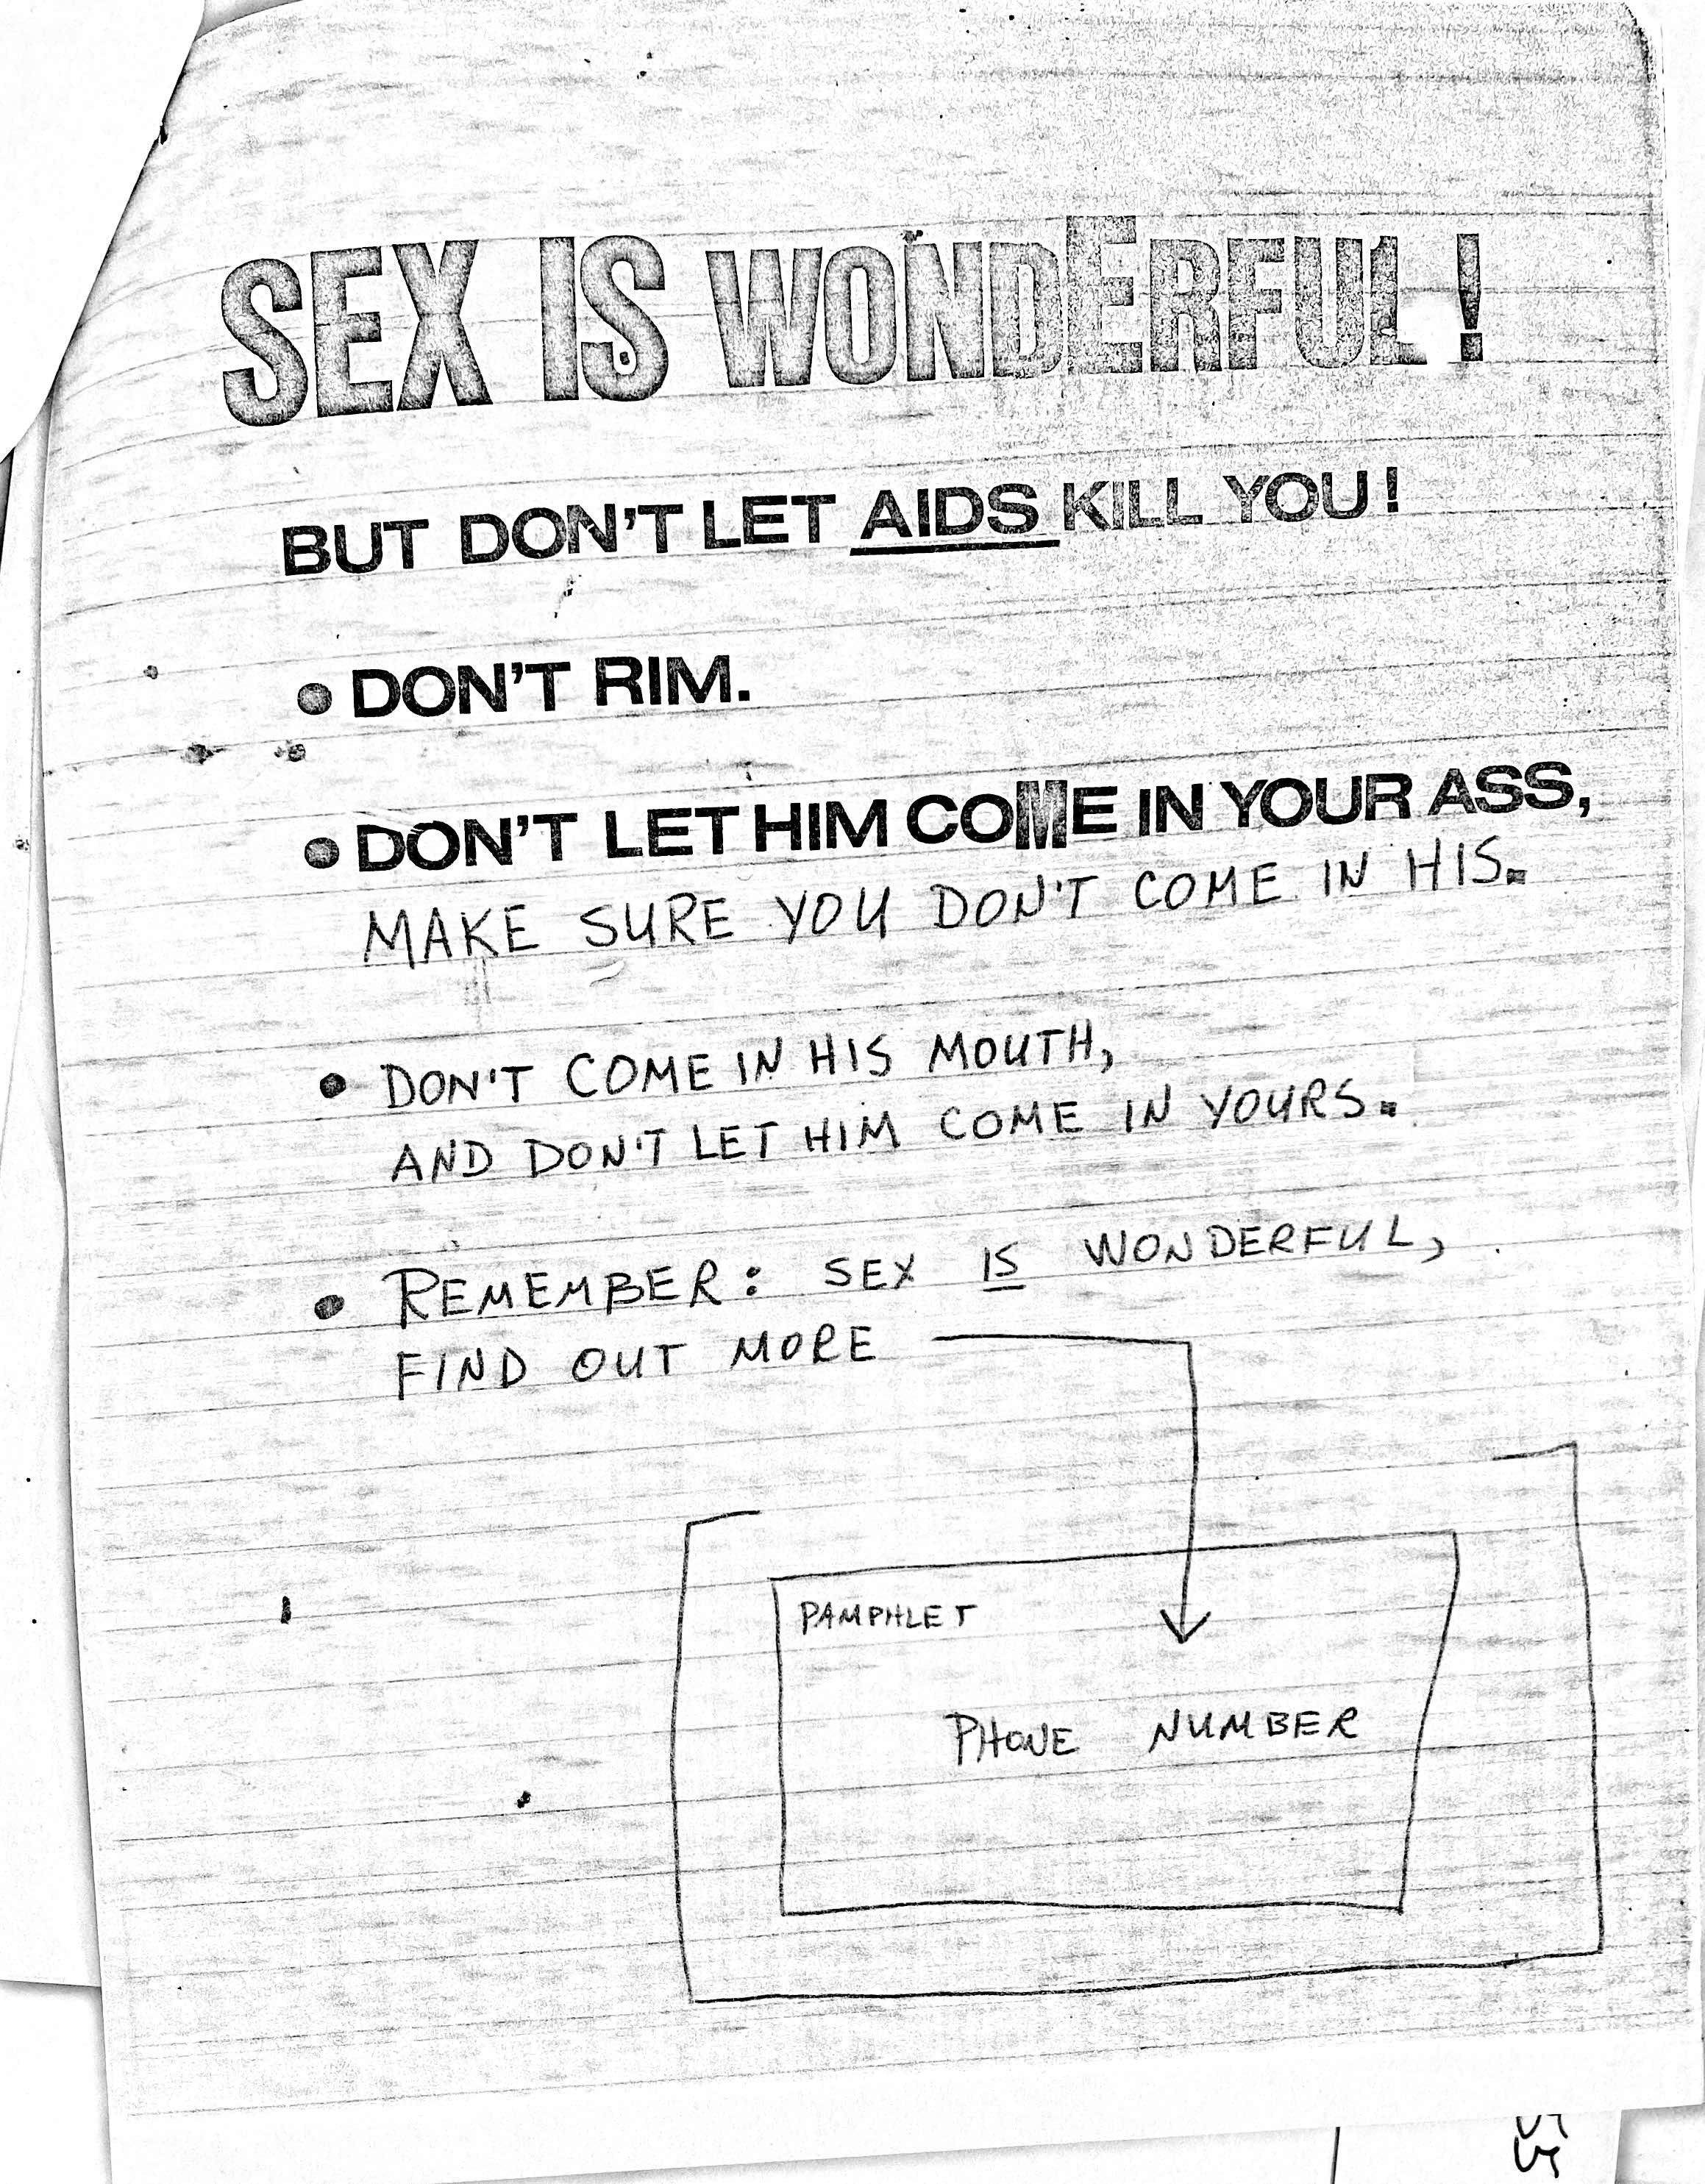 SEX IS WONDERFUL!
BUT DON'T LET AIDS KILL YOU!
● DON'T RIM.
● DON'T LET HIM COME IN YOUR ASS,
MAKE SURE YOU DON'T COME IN HIS.
● DON'T COME IN HIS MOUTH,
AND DON'T LET HIM COME IN YOURS.
● REMEMBER: SEX IS WONDERFUL,
FIND OUT MORE
PAMPHLET
PHONE NUMBER